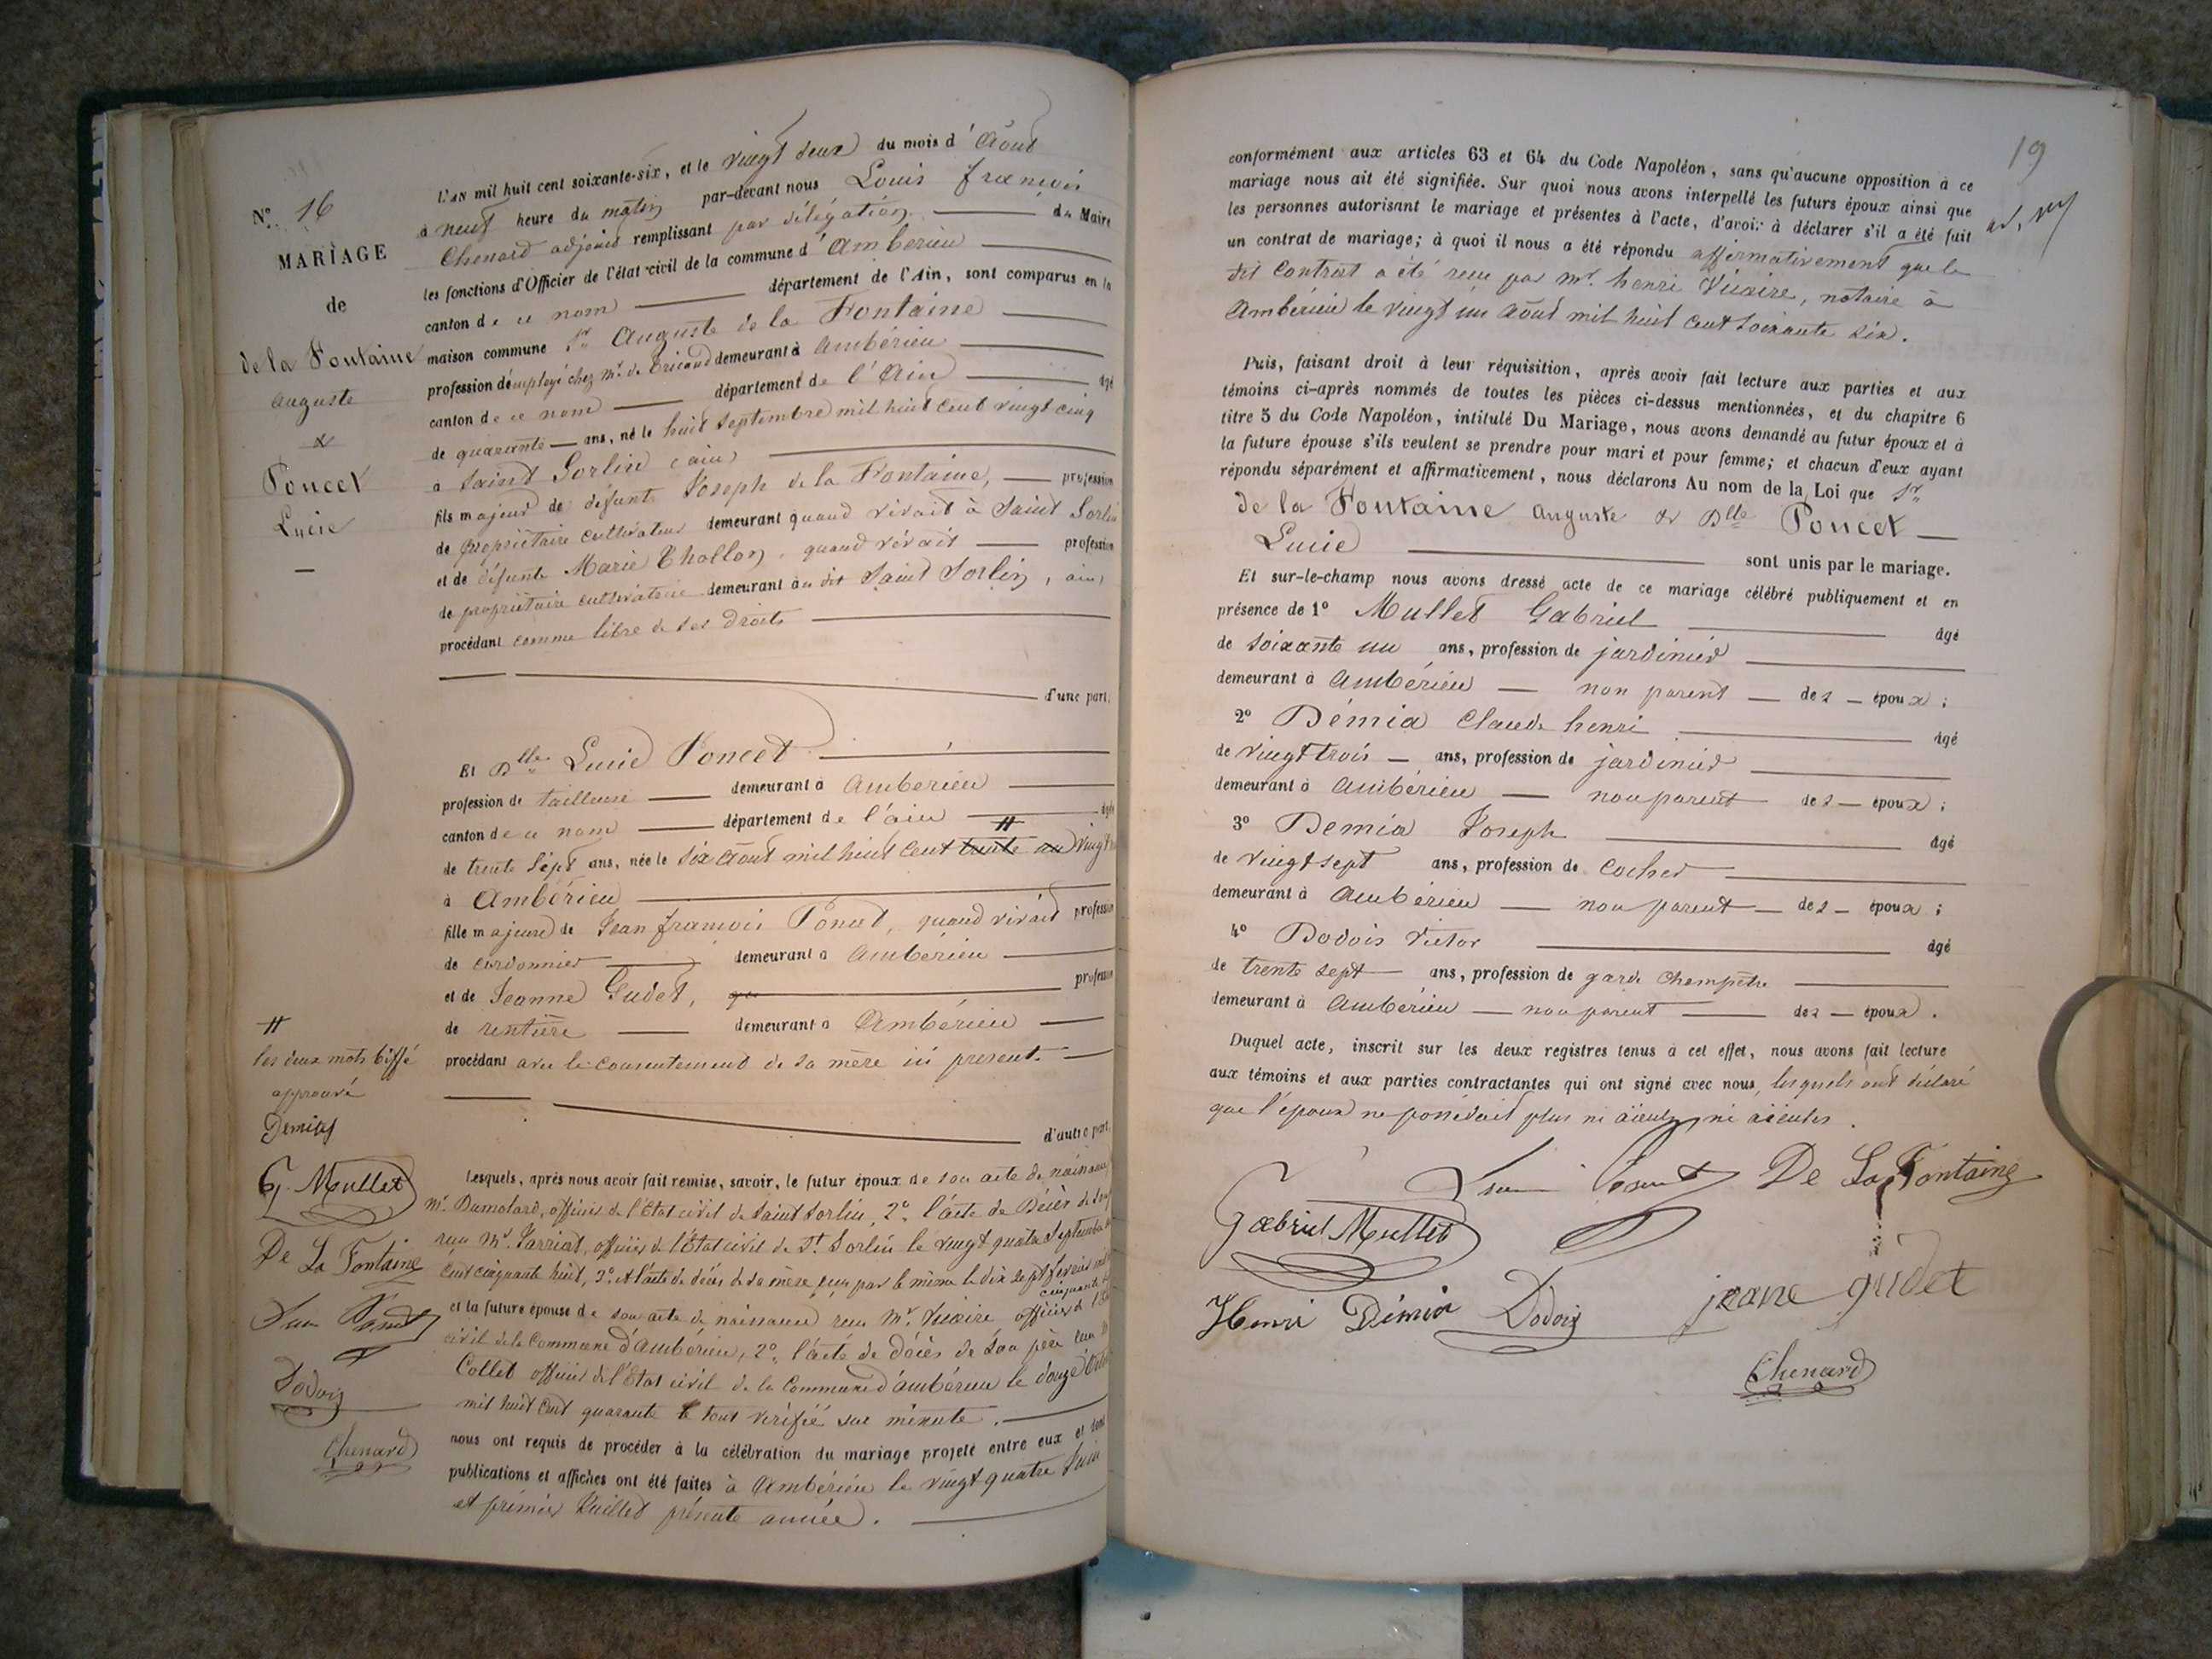 N°. 16
MARIAGE
de
de la Fontaine
Auguste
&
Poncet
Lucie
L'AN mil huit cent soixante-six, et le vingt deux du mois d'Août
à neuf heure du matin par-devant nous Louis françois
Chenard adjoint remplissant par délégation du Maire
les fonctions d'Officier de l'état-civil de la commune d'Ambérieu
canton de ce nom département de l'Ain, sont comparus en la
maison commune Sr Auguste de la Fontaine
profession d'employé chez Mr. de Tricaud demeurant à Ambérieu
canton de ce nom département de l'Ain âgé
de quarante ans, né le huit Septembre mil huit cent vingt cinq
à Saint Sorlin (ain)
fils majeur de défunt Joseph de la Fontaine, profession
de propriétaire cultivateur demeurant quand vivait à Saint Sorlin
et de défunte Marie Chollon, quand vivait profession
de propriétaire cultivatrice demeurant au dit Saint Sorlin, ain)
procédant comme libre de ses droits
d'une part.
Et Dlle Lucie Poncet
profession de tailleuse demeurant à Ambérieu
canton de ce nom département de l'ain âgée
de trente sept ans, née le six Août mil huit cent trente un vingt
à Ambérieu
fille majeure de Jean françois Poncet, quand vivait profession
de cordonnier demeurant à Ambérieu
et de Jeanne Gudet, profession
de rentière demeurant à Ambérieu
procédant avec le consentement de sa mère ici présent.
d'autre part.
#
les deux mots biffé
approuvé
Demias
G. Mullet
De La Fontaine
Dodois
Chenard
Lesquels, après nous avoir fait remise, savoir, le futur époux de son acte de naissance
Mr. Dumolard, officier de l'Etat civil de Saint Sorlin, 2°. l'acte de Décès de son
reçu Mr. Jarriat, officier de l'Etat civil de St. Sorlin le vingt quatre Septembre
cent cinquante huit, 3°. et l'acte de décès de sa mère reçu par le même le dix sept fevrier
cinquante
et la future épouse de son acte de naissance reçu Mr. Vicaire officier de l'Etat
civil de la Commune d'Ambérieu, 2°. l'acte de décès de son père reçu
Collet officier de l'Etat civil de la Commune d'ambérieu le douze
mil huit cent quarante le tout vérifié sur minute.
nous ont requis de procéder à la célébration du mariage projeté entre eux et dont
publications et affiches ont été faites à Ambérieu le vingt quatre Juin
et premier Juillet présente année.
19
conformément aux articles 63 et 64 du Code Napoléon, sans qu'aucune opposition à ce
mariage nous ait été signifiée. Sur quoi nous avons interpellé les futurs époux ainsi que
les personnes autorisant le mariage et présentes à l'acte, d'avoir à déclarer s'il a été fait
un contrat de mariage; à quoi il nous a été répondu affirmativement que le
dit Contrat a été reçu par Mr. henri Vicaire, notaire à
Ambérieu le vingt un Août mil huit cent soixante six.
Puis, faisant droit à leur réquisition, après avoir fait lecture aux parties et aux
témoins ci-après nommés de toutes les pièces ci-dessus mentionnées, et du chapitre 6
titre 5 du Code Napoléon, intitulé Du Mariage, nous avons demandé au futur époux et à
la future épouse s'ils veulent se prendre pour mari et pour femme; et chacun d'eux ayant
répondu séparément et affirmativement, nous déclarons Au nom de la Loi que Sr
de la Fontaine Auguste & Dlle Poncet
Lucie sont unis par le mariage.
Et sur-le-champ nous avons dressé acte de ce mariage célébré publiquement et en
présence de 1° Mullet Gabriel âgé
de soixante un ans, profession de jardinier
demeurant à Ambérieu non parent des époux;
2° Démia Claude henri âgé
de vingt trois ans, profession de jardinier
demeurant à Ambérieu non parent des époux;
3° Demia Joseph âgé
de vingt sept ans, profession de cocher
demeurant à Ambérieu non parent des époux;
4° Dodois Victor âgé
de trente sept ans, profession de garde champêtre
demeurant à Ambérieu non parent des époux.
Duquel acte, inscrit sur les deux registres tenus à cet effet, nous avons fait lecture
aux témoins et aux parties contractantes qui ont signé avec nous, lesquels ont déclaré
que l'époux ne possédait plus ni aïeuls ni aïeules.
De La Fontaine
Gabriel Mullet
Henri Démia Dodois jeane gudet
Chenard